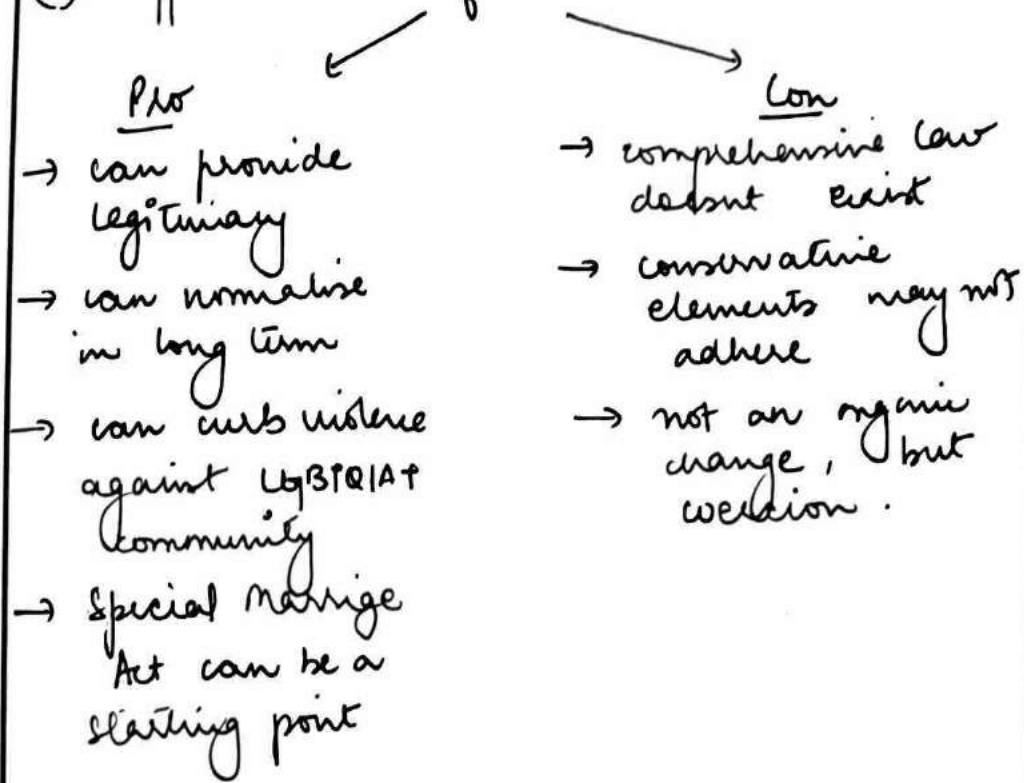 Pro
→ can provide
legitimacy
→ can normalise
in long term
→ can curb violence
against LGBTQIA+
community
→ Special Marrige
Act can be a
starting point
Con
→ comprehensive law
doesnt exist
→ conservative
elements may not
adhere
→ not an organic
change, but
coercion.